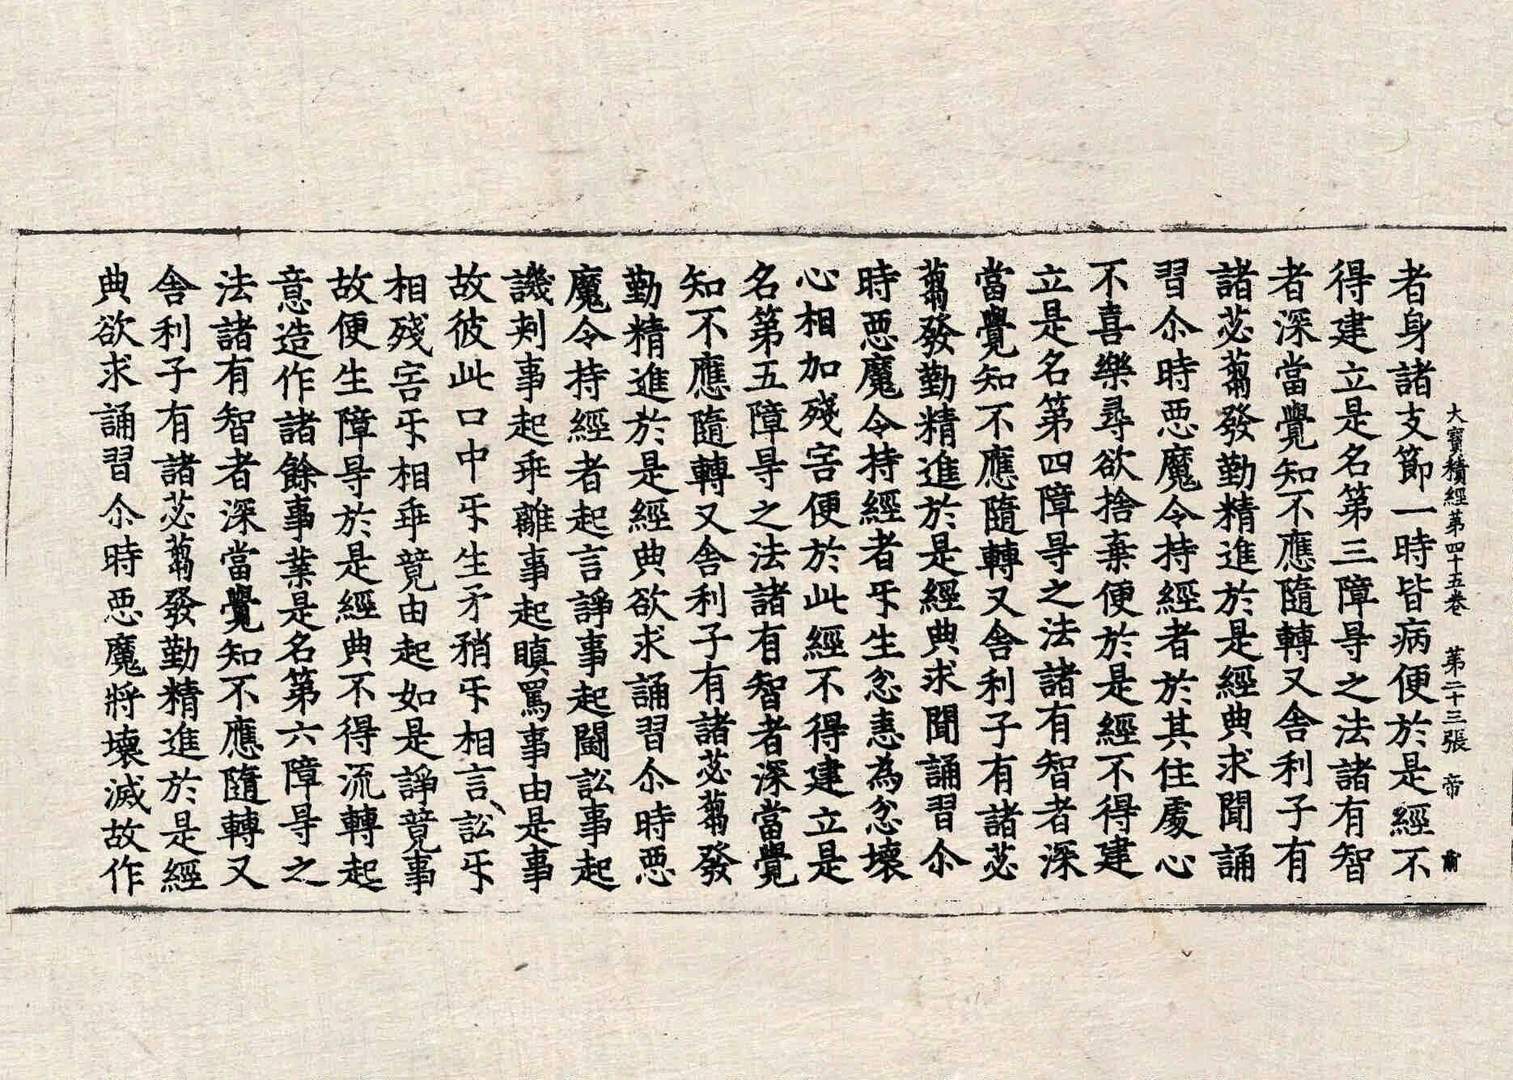 大寶積經第四十五卷　第二十三張　帝
者身諸支節一時皆病便於是經不
得建立是名第三障㝵之法諸有智
者深當覺知不應隨轉又舍利子有
諸苾蒭發勤精進於是經典求聞誦
習尒時惡魔令持經者於其住處心
不喜樂尋欲捨棄便於是經不得建
立是名第四障㝵之法諸有智者深
當覺知不應隨轉又舍利子有諸苾
蒭發勤精進於是經典求聞誦習尒
時惡魔令持經者㸦生忿恚為忿壞
心相加殘害便於此經不得建立是
名第五障㝵之法諸有智者深當覺
知不應隨轉又舍利子有諸苾蒭發
勤精進於是經典欲求誦習尒時惡
魔令持經者起言諍事起鬪訟事起
譏刾事起乖離事起瞋罵事由是事
故彼此口中㸦生矛矟㸦相言訟㸦
相殘害㸦相乖競由起如是諍競事
故便生障㝵於是經典不得流轉起
意造作諸餘事業是名第六障㝵之
法諸有智者深當覺知不應隨轉又
舍利子有諸苾蒭發勤精進於是經
典欲求誦習尒時惡魔將壞滅故作